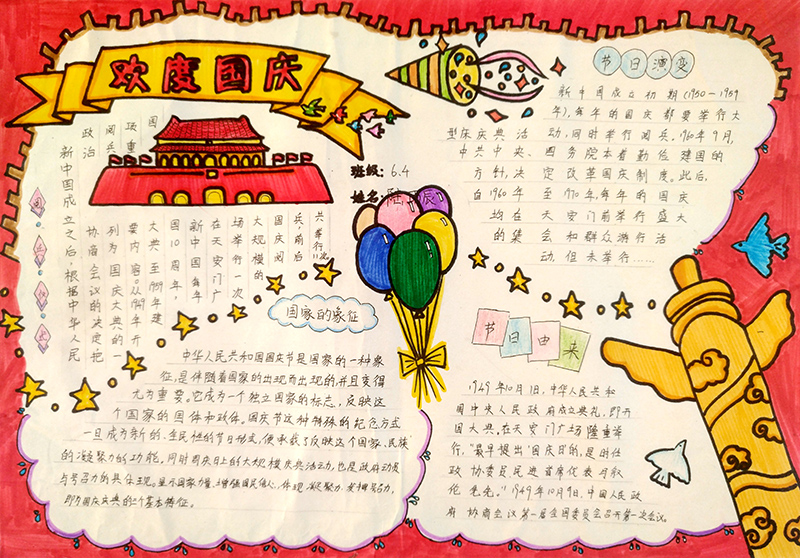 欢度国庆
班级：6.4
姓名：
阅兵仪式
新中国成立之后，根据中华人民
政治协商会议的决定把
阅兵列为国庆大典的一
项重要内容。从1949年开
国大典至1959年建
国10周年，
新中国每年
在天安门广
场举行一次
大规模的
国庆阅
兵，前后
共举行11次
节日演变
新中国成立初期(1950—1959
年)，每年的国庆都要举行大
型庆庆典活动，同时举行阅兵。1960年9月，
中共中央、国务院本着勤俭建国的
方针，决定改革国庆制度。此后，
自1960年至1970年，每年的国庆
均在天安门前举行盛大
的集会和群众游行活
动，但未举行……
国家的象征
中华人民共和国国庆节是国家的一种象
征，是伴随着国家的出现而出现的并且变得
尤为重要。它成为一个独立国家的标志，反映这
个国家的国体和政体。国庆节这种特殊的纪念方式
一旦成为新的、全民性的节日形式，便承载了反映这个国家、民族
的凝聚力的功能。同时国庆日上的大规模庆典活动，也是政府动员
与号召力的具体现。显示国家力量、增强国民信心，体现凝聚力，发挥号召力，
即为国庆庆典的三个基本特征。
节日由来
1949年10月1日，中华人民共和
国中央人民政府成立典礼，即开
国大典，在天安门广场隆重举
行。"最早提出'国庆日'的，是时任
政协委员民进首席代表马叙
伦先生。"1949年10月9日，中国人民政
府协商会议第一届全国委员会召开第一次会议。